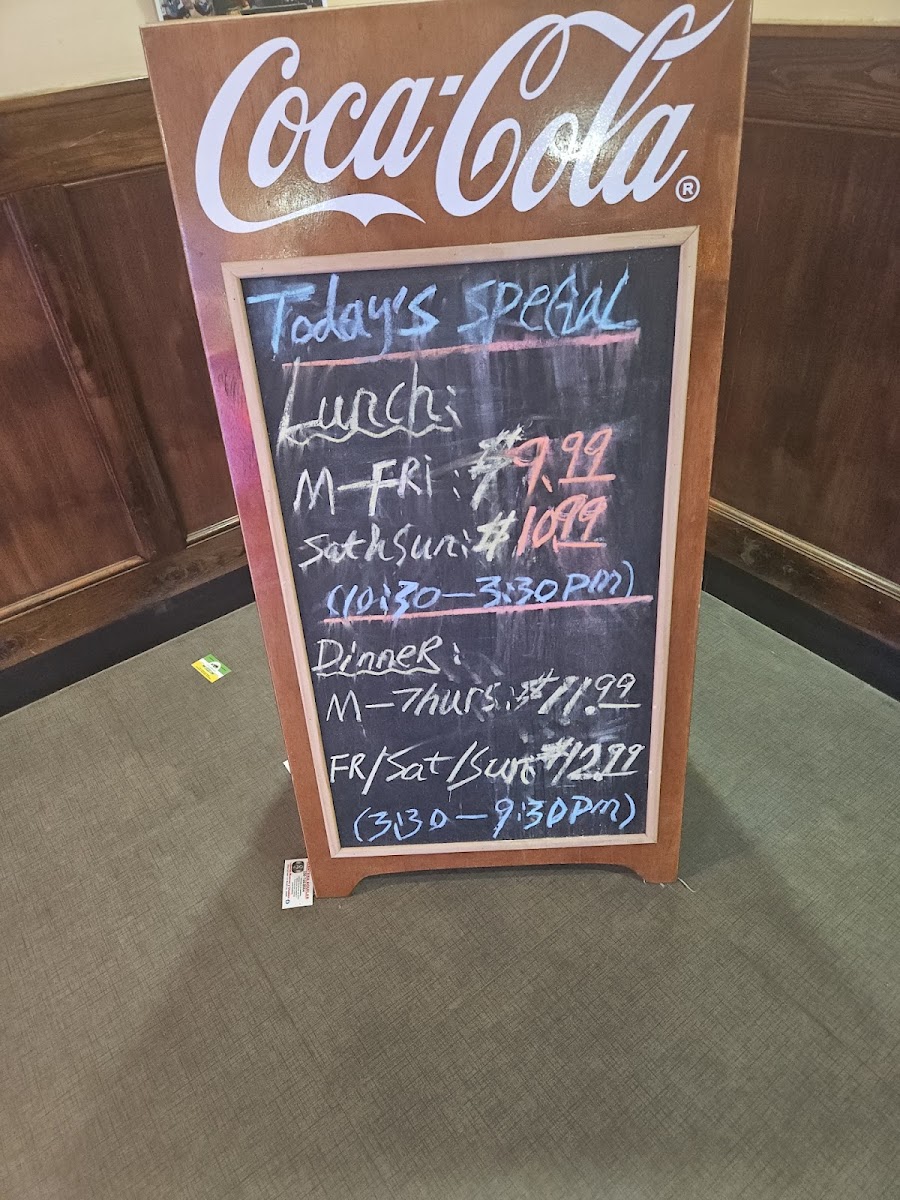 Coca-Cola®
Today's SPECIAL
Lunch:
M-FRi: $9.99
Sat&Sun: $10.99
(10:30-3:30pm)
DinneR:
M-Thurs: $11.99
FR/Sat/Sun $12.99
(3:30-9:30pm)